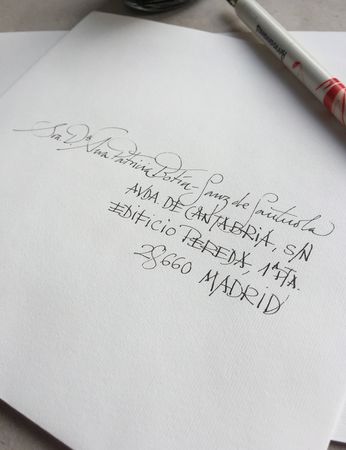 Sra. Dª Ana Patricia Botín-Sanz de Sautuola
AVDA DE CANTABRIA, S/N
EDIFICIO PEREDA, 1ª PTA.
28660 MADRID